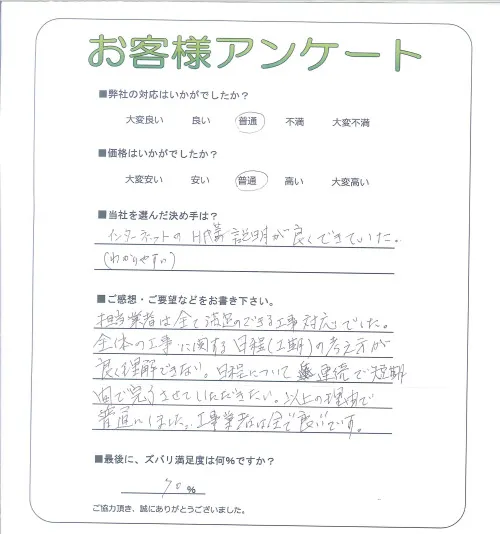 お客様アンケート
■弊社の対応はいかがでしたか?
大変良い 良い 普通 不満 大変不満
■価格はいかがでしたか?
大変安い 安い 普通 高い 大変高い
■当社を選んだ決め手は?
インターネットのHP等説明が良くできていた。
(わかりやすい)
■ご感想・ご要望などをお書き下さい。
担当業者は全て満足のできる工事対応でした。
全体の工事に関する日程(工期)の考え方が
良く理解できない。日程について 連続で短期
間で完了させていただきたい。以上の理由で
普通にしました。工事業者は全て良いです。
■最後に、ズバリ満足度は何%ですか?
70%
ご協力頂き、誠にありがとうございました。